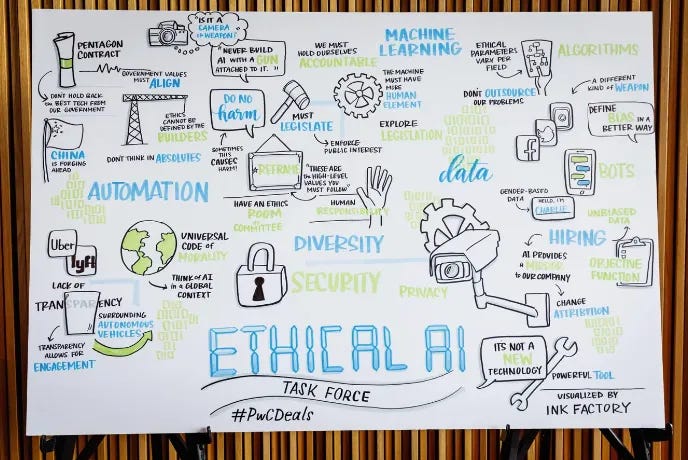 PENTAGON
CONTRACT
GOVERNMENT VALUES
MUST ALIGN
DON'T HOLD BACK
THE BEST TECH FROM
OUR GOVERNMENT
CHINA
IS FORGING
AHEAD
"IS IT A
CAMERA
OR WEAPON?"
"NEVER BUILD
AI WITH A GUN
ATTACHED TO IT."
ETHICS
CANNOT BE
DEFINED BY THE
BUILDERS
DON'T THINK IN ABSOLUTES
DO NO
harm
SOMETIMES
THIS
CAUSES
HARM!
WE MUST
HOLD OURSELVES
ACCOUNTABLE
MUST
LEGISLATE
ENFORCE
PUBLIC INTEREST
MACHINE
LEARNING
THE MACHINE
MUST HAVE
MORE
HUMAN
ELEMENT
EXPLORE
LEGISLATION
ETHICAL
PARAMETERS
VARY PER
FIELD
ALGORITHMS
DON'T OUTSOURCE
OUR PROBLEMS
A DIFFERENT
KIND OF WEAPON
DEFINE
BIAS IN A
BETTER WAY
BOTS
data
GENDER-BASED
DATA
HELLO, I'M
CHARLIE
UNBIASED
DATA
HIRING
OBJECTIVE
FUNCTION
AI PROVIDES
A MISSION
TO OUR COMPANY
CHANGE
ATTRIBUTION
AUTOMATION
REFRAME
"THESE ARE
THE HIGH-LEVEL
VALUES YOU
MUST FOLLOW"
HAVE AN ETHICS
ROOM
OR COMMITTEE
HUMAN
RESPONSIBILITY
DIVERSITY
SECURITY
PRIVACY
Uber
lyft
LACK OF
TRANSPARENCY
TRANSPARENCY
ALLOWS FOR
ENGAGEMENT
SURROUNDING
AUTONOMOUS
VEHICLES
UNIVERSAL
CODE OF
MORALITY
THINK OF AI
IN A GLOBAL
CONTEXT
ETHICAL AI
TASK FORCE
#PwCDeals
ITS NOT A
NEW
TECHNOLOGY
POWERFUL TOOL
VISUALIZED BY
INK FACTORY